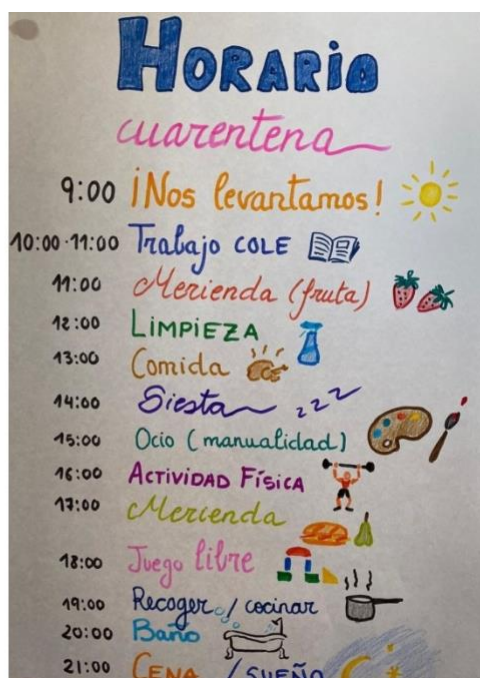 HORARiO
cuarentena
9:00 ¡Nos levantamos!
10:00-11:00 Trabajo COLE
11:00 Merienda (fruta)
12:00 LIMPIEZA
13:00 Comida
14:00 Siesta zzz
15:00 Ocio (manualidad)
16:00 ACTIVIDAD FÍSICA
17:00 Merienda
18:00 Juego libre
19:00 Recoger / cocinar
20:00 Baño
21:00 CENA / SUEÑO